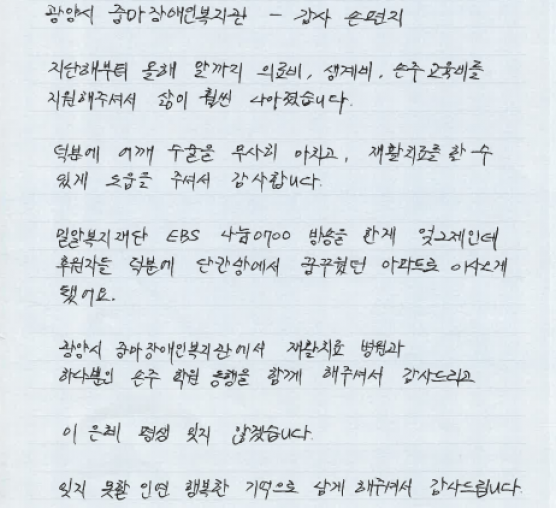 광양시 중마장애인복지관 - 감사 손편지
지난해부터 올해 말까지 의료비, 생계비, 손주교육비를
지원해주셔서 삶이 훨씬 나아졌습니다.
덕분에 어깨 수술을 무사히 마치고, 재활치료를 할 수
있게 도움을 주셔서 감사합니다.
밀알복지재단 EBS 나눔0700 방송을 한게 엊그제인데
후원자들 덕분에 단칸방에서 꿈꾸웠던 아파트로 이사오게
됐어요.
광양시 중마장애인복지관에서 재활치료 병원과
하나뿐인 손주 학원 동행을 함께 해주셔서 감사드리고
이 은혜 평생 잊지 않겠습니다.
잊지 못할 인연 행복한 기억으로 남게 해주셔서 감사드립니다.